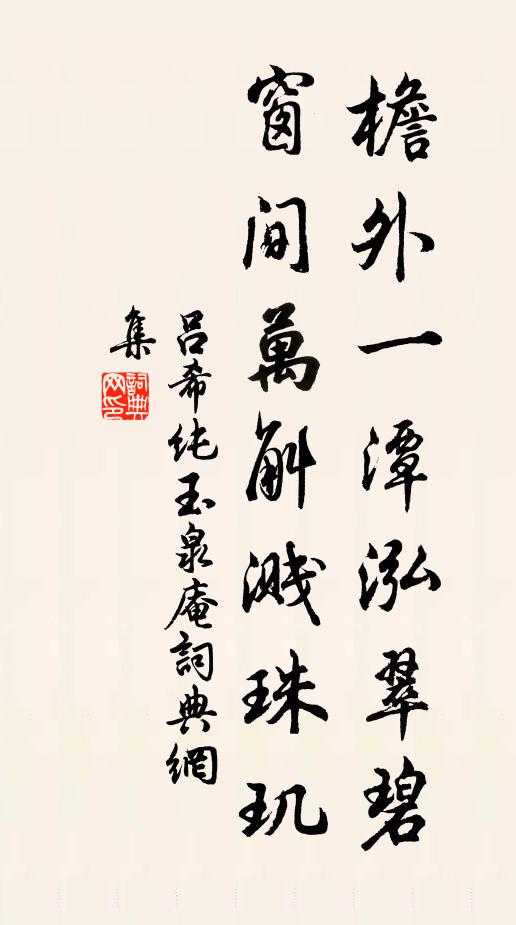 檐外一潭泓翠碧
窗间萬斛溅珠玑
吕希纯玉泉庵詞典網
集
詞典网印